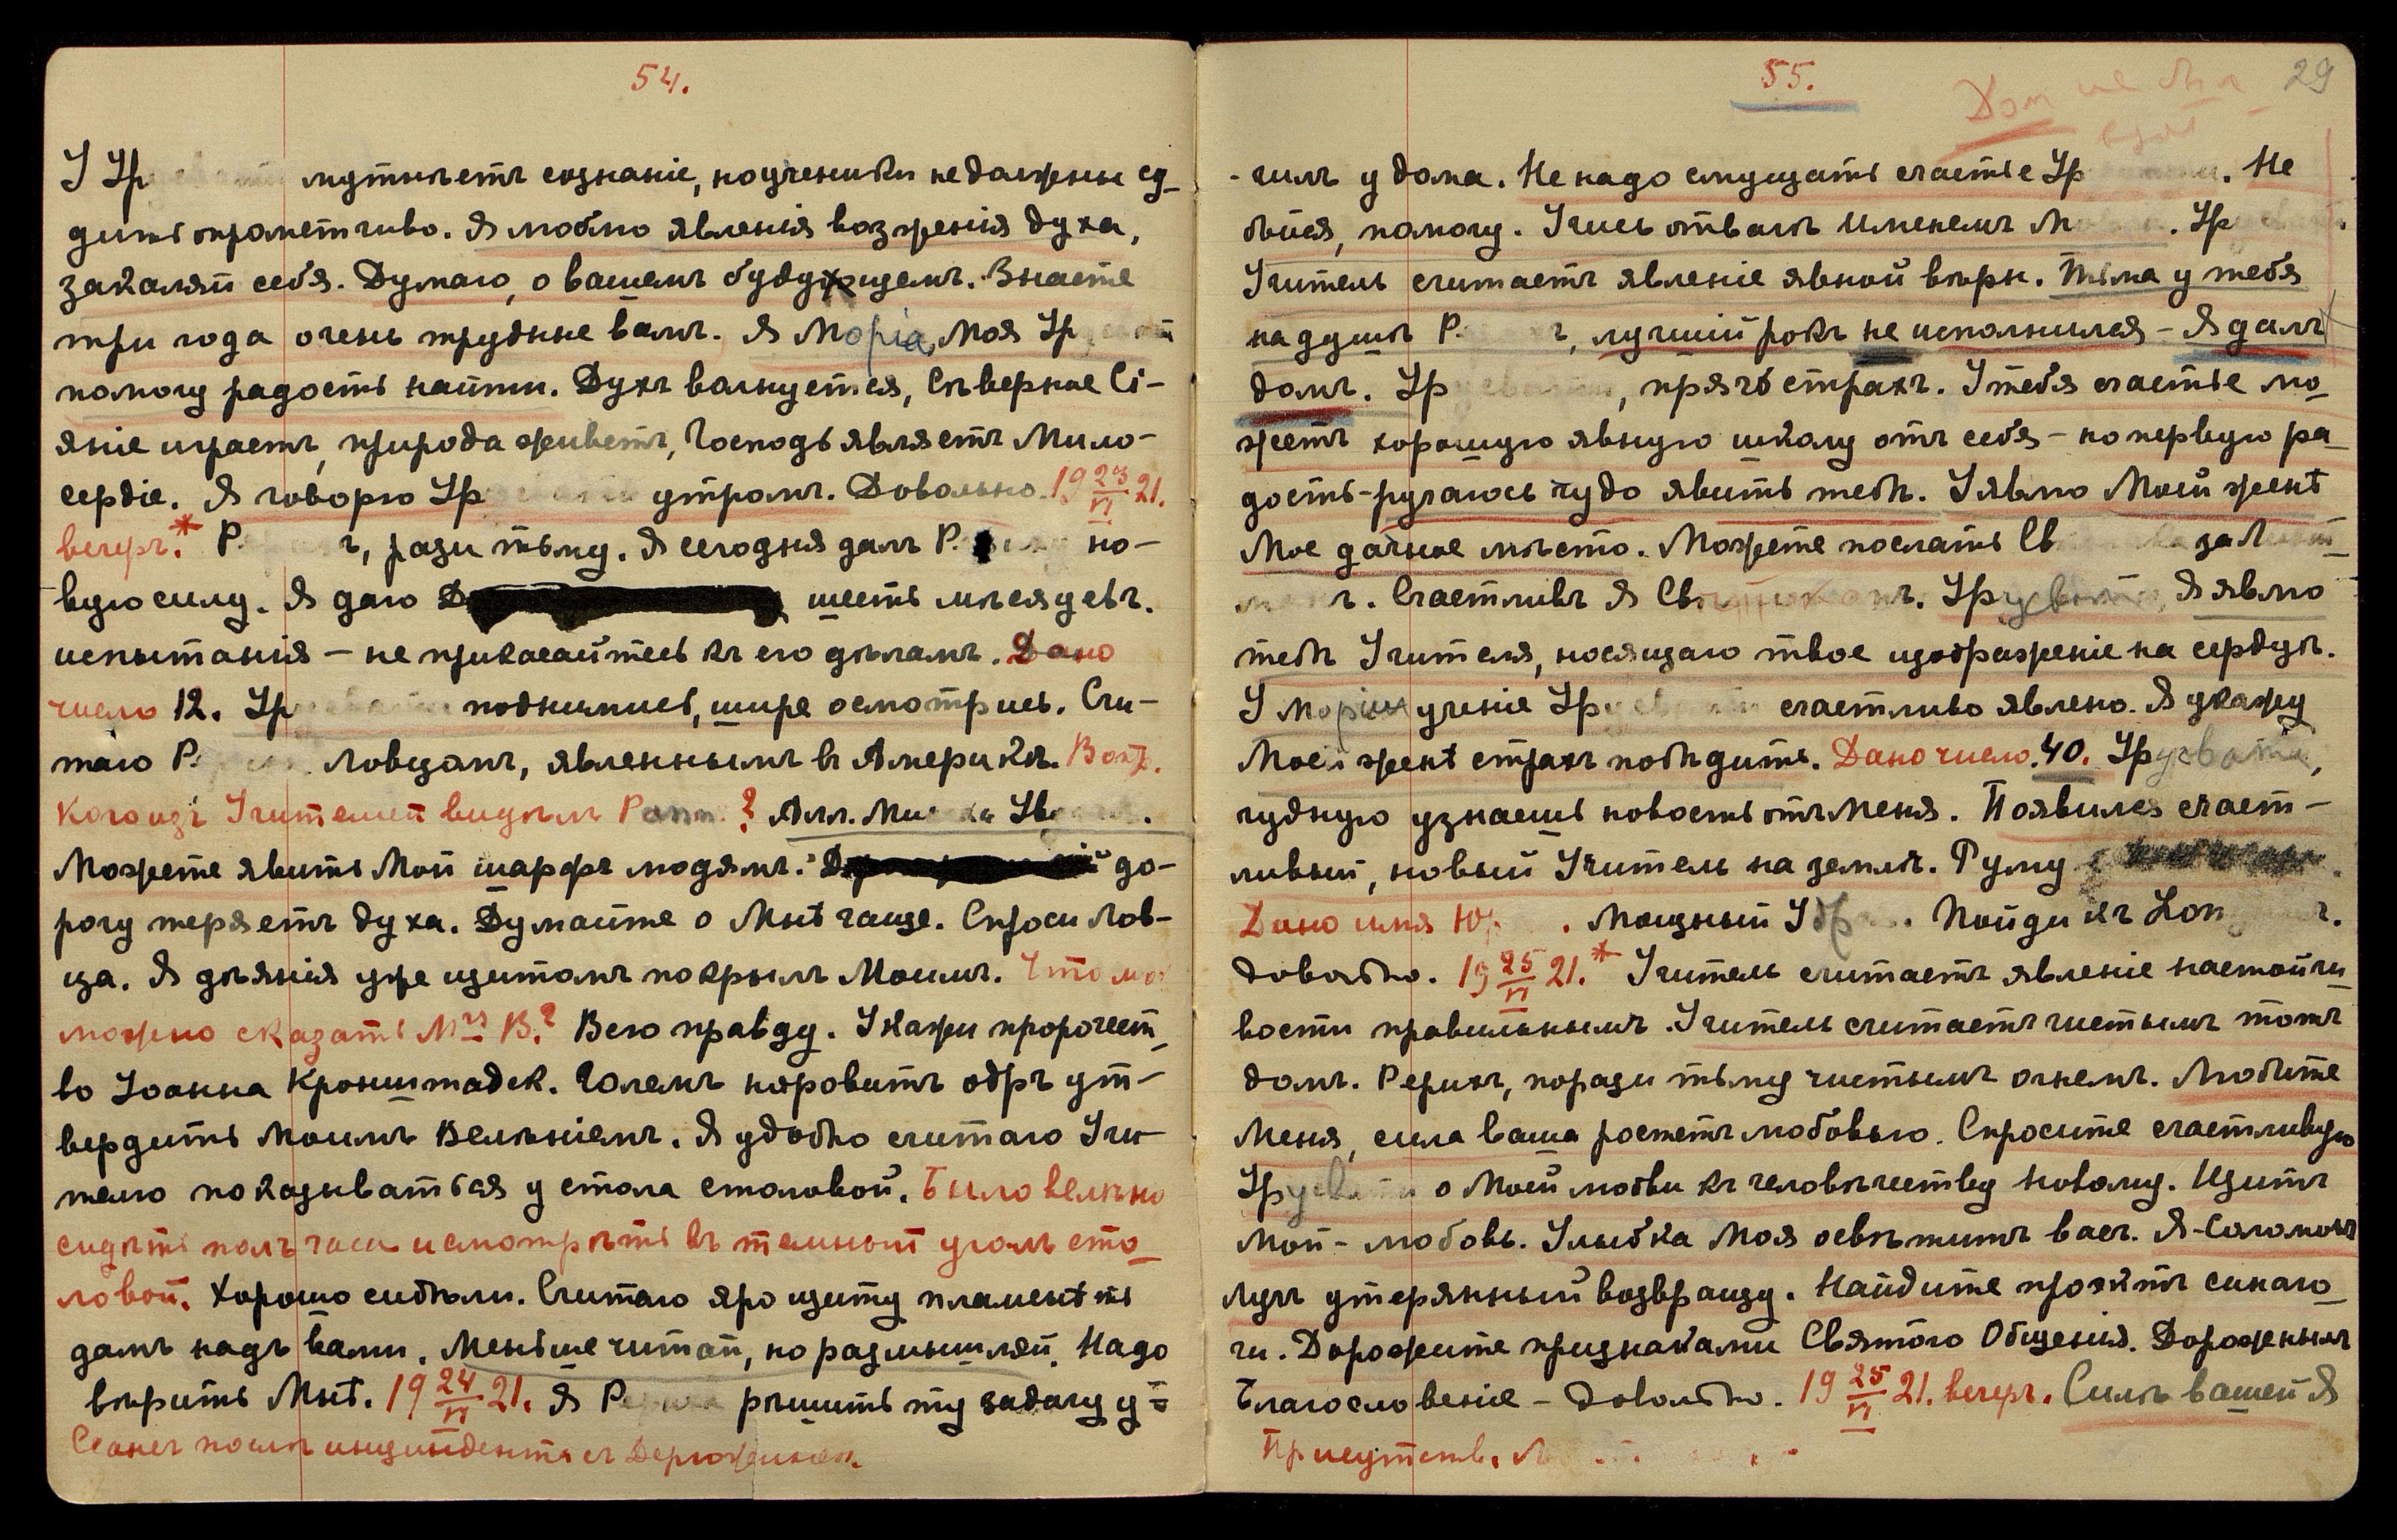 54.
У Ур мутнѣетъ сознаніе, но ученики не должны су-
дить опрометчиво. Я люблю явленія возженія духа,
закаляй себя. Думаю, о вашемъ будующемъ. Знаете
три года очень трудные вамъ. Я Моріа, Моя Ур
помогу радость найти. Духъ волнуется, Сѣверное Сі-
яніе играетъ, природа живетъ, Господь являетъ Мило-
сердіе. Я говорю Ур утромъ. Довольно. 19 23/VI 21.
вечеръ.* Р. ъ, рази тьму. Я сегодня далъ Р. но-
вую силу. Я даю шесть мѣсяцевъ.
испытанія – не прикасайтесь къ его дѣламъ. Дано
число 12. Ур поднимись, шире осмотрись. Счи-
таю Р. Ловцомъ, явленнымъ въ Америкѣ. Вопр.
Кого изъ Учителей видѣлъ ? Алл. Ми
Можете явить Мой шарфъ людямъ. до-
рогу теряетъ духа. Думайте о Мнѣ чаще. Спроси Лов-
ца. Я дѣянія уже щитомъ покрылъ Моимъ. Что мо
можно сказать Mrs В.? Всю правду. Укажи пророчест-
во Іоанна Кронштадск. Големъ норовитъ одръ ут-
вердить Моимъ Велѣніемъ. Я удобно считаю Учи-
телю показываться у стола столовой. Было велѣно
сидѣть полъ часа и смотрѣть въ темный уголъ сто-
ловой. Хорошо сидѣли. Считаю яро щиту пламенѣть
домъ надъ вами. Меньше читай, но размышляй. Надо
вѣрить Мнѣ. 19 24/VI 21. Я Р рѣшить ту задачу у=
Сеансъ послѣ инцидента съ
55.
29
-чилъ у дома. Не надо смущать счастье Ур . Не
бойся, помогу. Учись отвагѣ Именемъ М . Ур
Учитель считаетъ явленіе явной вѣры. Тьма у тебя
на душѣ Р. ъ, лучшій рокъ не исполнился – Я далъ
домъ. Ур , прячь страхъ. У тебя счастье мо-
жетъ хорошую явную школу отъ себя – но первую ра-
дость – ручаюсь чудо явить тебѣ. Я явлю Моей женѣ
Мое дачное мѣсто. Можете послать Св за
ъ. Счастливъ Я Св ъ. Урусвати, Я явлю
тебѣ Учителя, носящаго твое изображеніе на сердцѣ.
У Моріи ученіе Ур счастливо явлено. Я укажу
Моей женѣ страхъ побѣдить. Дано число. 40. Урусвати,
чудную узнаешь новость отъ Меня. Появился счаст-
ливый, новый Учитель на землѣ. Руму
Дано имя Ю . Мощный У . Пойди къ Лон ъ.
довольно. 19 25/VI 21.* Учитель считаетъ явленіе настойчи-
вости правильнымъ. Учитель считаетъ чистымъ тотъ
домъ. Рерихъ, порази тьму чистымъ огнемъ. Любите
Меня, сила ваша ростетъ любовью. Спросите счастливую
Урусвати о Моей любви къ человѣчеству новому. Щитъ
Мой – любовь. Улыбка Моя освѣтитъ васъ. Я – Соломонъ
лучъ утерянный возвращу. Найдите проэктъ синаго-
ги. Дорожите признаками Святого Общенія. Дороженымъ
Благословеніе – довольно. 19 25/VI 21. вечеръ. Силѣ вашей Я
Присутств.